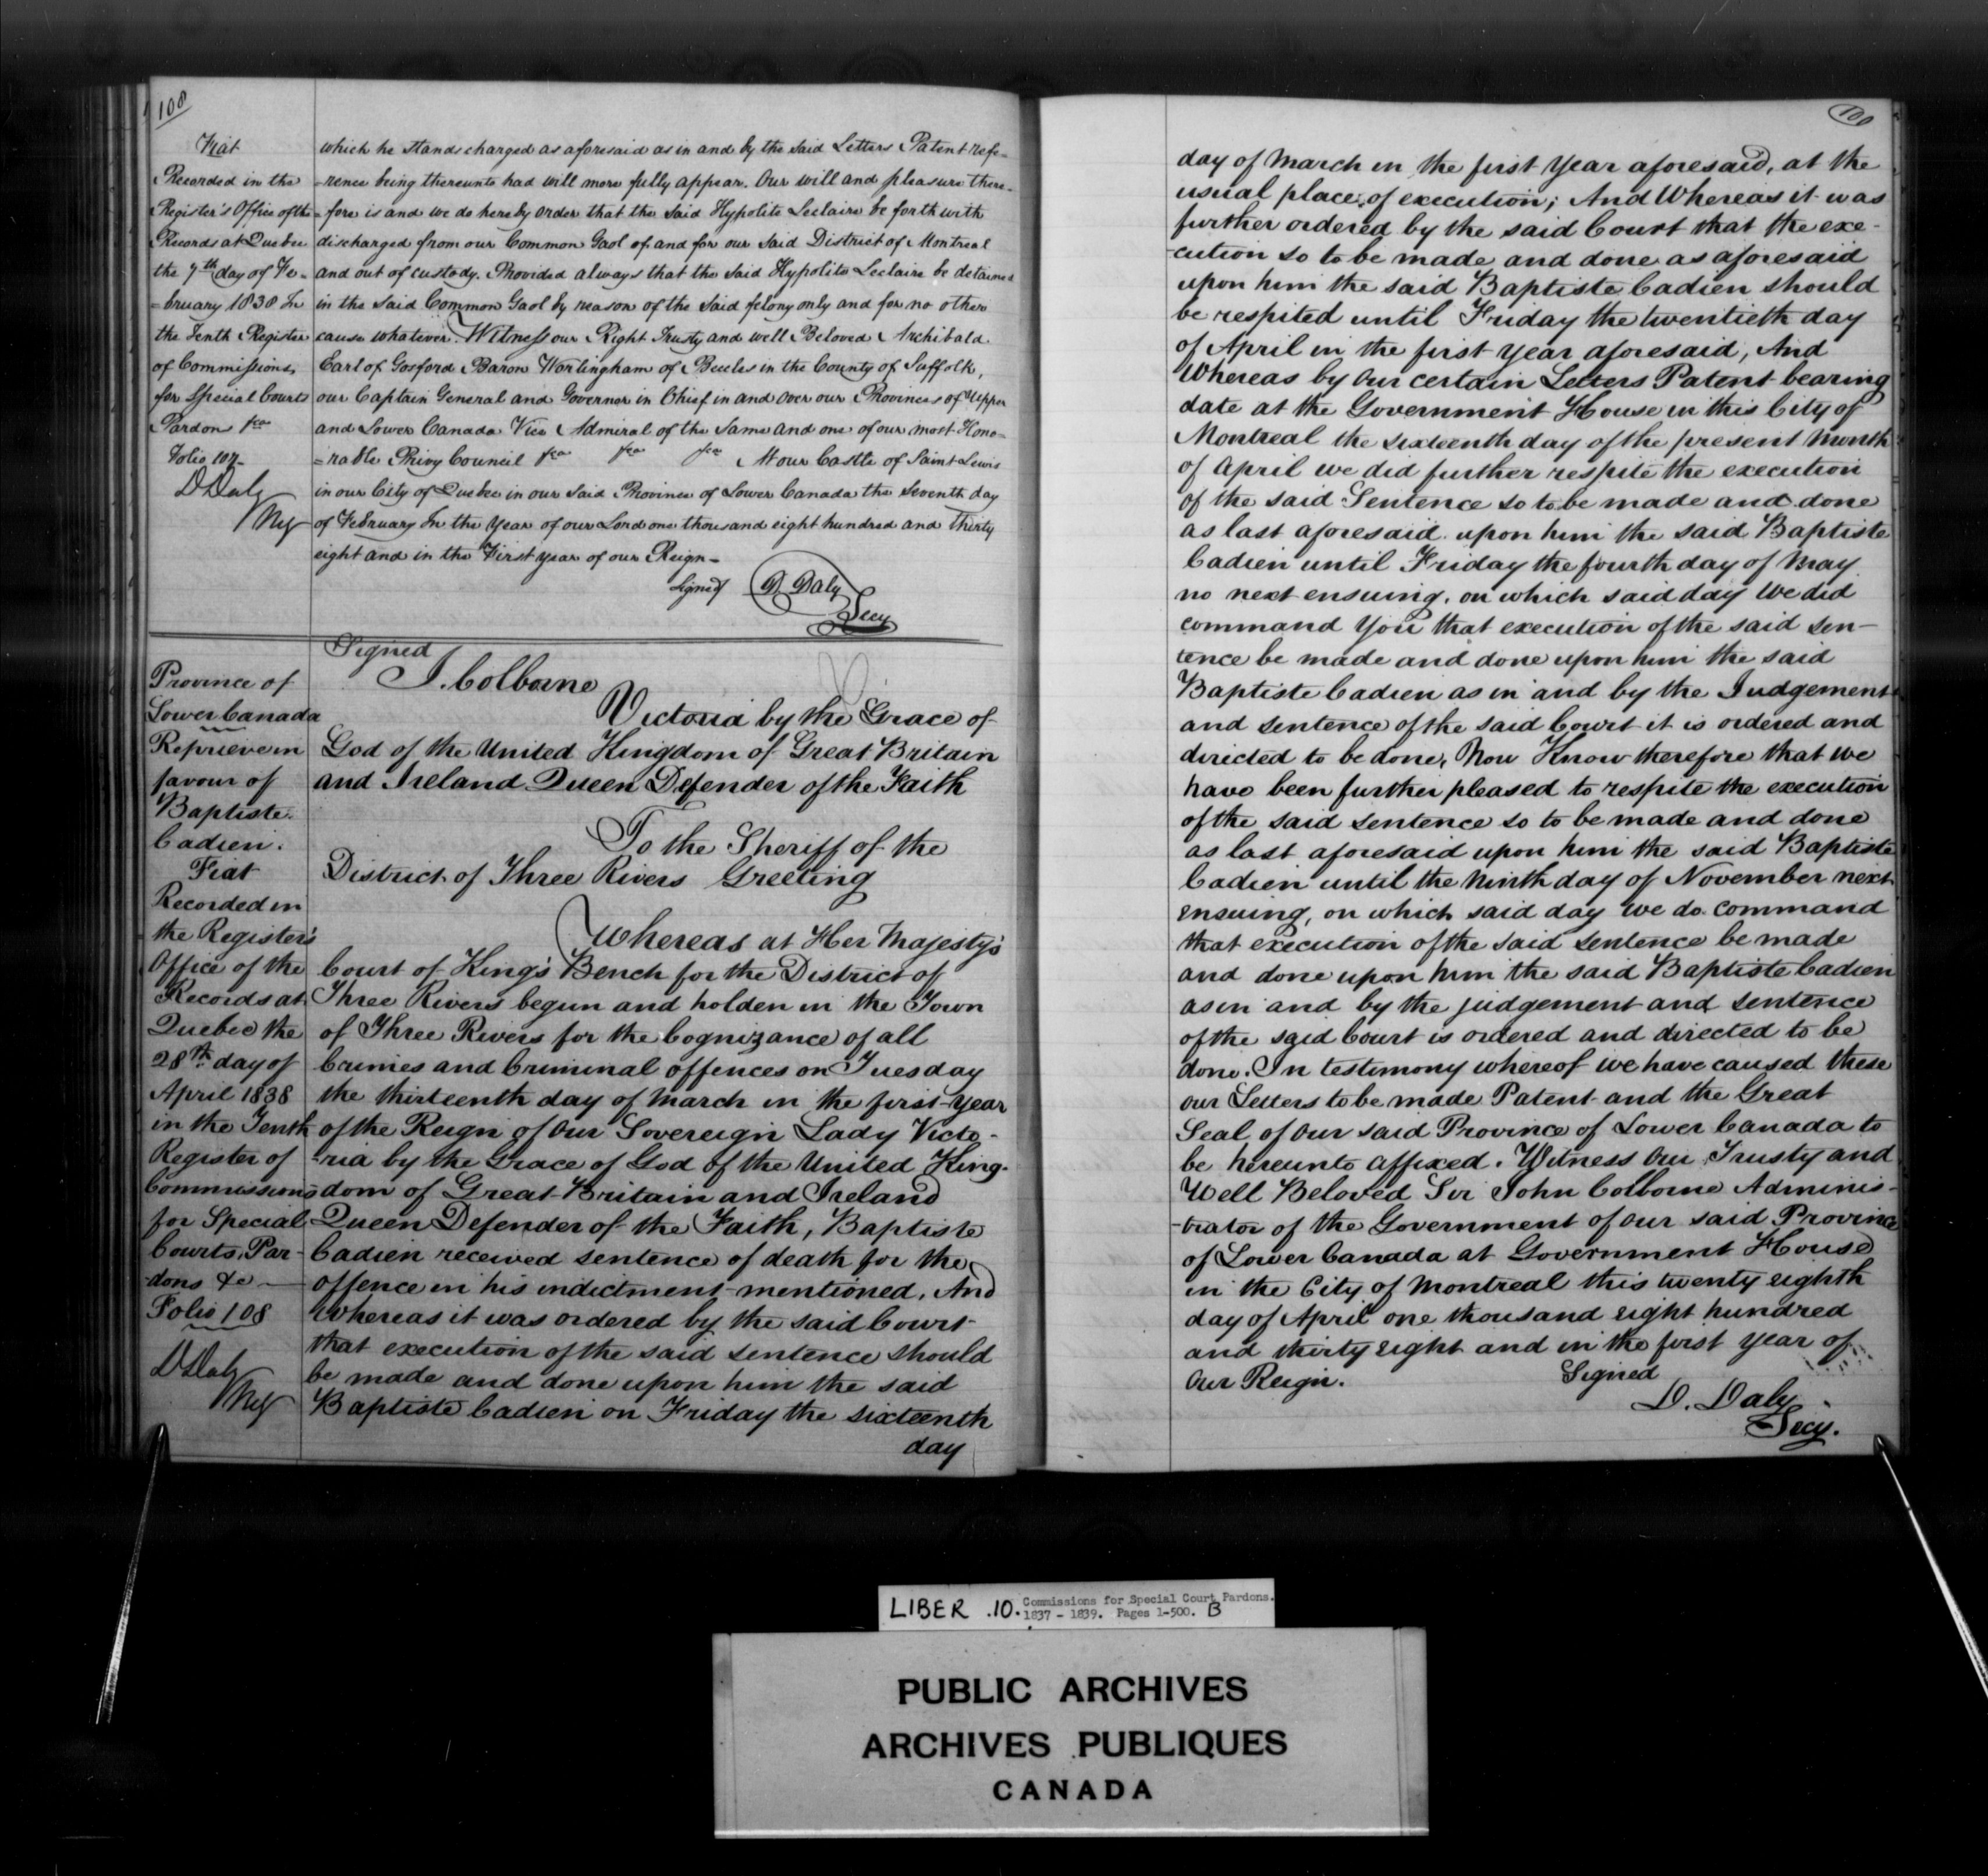 108
Fiat
Recorded in the
Register's Office of the
Records at Quebec
the 7th day of Fe-
=bruary 1838 In
the Tenth Register
of Commissions,
for Special Courts
Pardon &ca
Folio 107-
D Daly
Reg
which he stands charged as aforesaid as in and by the said Letters Patent refe=
=rence being thereunto had will more fully appear. Our will and pleasure there-
=fore is and we do hereby order that the said Hypolite Leclaire be forthwith
discharged from our Common Gaol of and for our said District of Montreal
and out of custody. Provided always that the said Hypolite Leclaire be detained
in the said Common Gaol by reason of the said felony only and for no other
cause whatever. Witness our Right Trusty and well Beloved Archibald
Earl of Gosford Baron Worlingham of Beccles in the County of Suffolk,
our Captain General and Governor in Chief in and over our Provinces of Upper
and Lower Canada Vice Admiral of the same and one of our most Hono=
=rable Privy Council &ca &ca &ca At our Castle of Saint Lewis
in our City of Quebec in our said Province of Lower Canada the seventh day
of February In the Year of our Lord one thousand eight hundred and thirty
eight and in the First year of our Reign-
Signed D. Daly
Secy
Province of
Lower Canada
Reprieve in
favour of
Baptiste
Cadien.
Fiat
Recorded in
the Register's
Office of the
Records at
Quebec the
28th day of
April 1838
in the Tenth
Register of
Commissions
for Special
Courts, Par-
dons &c
Folio 108
D Daly
Reg
Signed
J. Colborne
Victoria by the Grace of
God of the United Kingdom of Great Britain
and Ireland Queen Defender of the Faith
To the Sheriff of the
District of Three Rivers Greeting
Whereas at Her Majesty's
Court of King's Bench for the District of
Three Rivers begun and holden in the Town
of Three Rivers for the Cognizance of all
Crimes and Criminal offences on Tuesday
the thirteenth day of March in the first year
of the Reign of Our Sovereign Lady Victo-
-ria by the Grace of God of the United King-
dom of Great Britain and Ireland
Queen Defender of the Faith, Baptiste
Cadien received sentence of death for the
offence in his indictment mentioned, And
Whereas it was ordered by the said Court
that execution of the said sentence should
be made and done upon him the said
Baptiste Cadien on Friday the sixteenth
day
day of March in the first Year aforesaid, at the
usual place of execution; And Whereas it was
further ordered by the said Court that the exe-
-cution so to be made and done as aforesaid
upon him the said Baptiste Cadien should
be respited until Friday the twentieth day
of April in the first year aforesaid, And
Whereas by Our certain Letters Patent bearing
date at the Government House in this City of
Montreal the sixteenth day of the present Month
of April we did further respite the execution
of the said Sentence so to be made and done
as last aforesaid upon him the said Baptiste
Cadien until Friday the fourth day of May
no next ensuing, on which said day We did
command You that execution of the said sen-
tence be made and done upon him the said
Baptiste Cadien as in and by the Judgement
and sentence of the said Court it is ordered and
directed to be done, Now Know therefore that we
have been further pleased to respite the execution
of the said sentence so to be made and done
as last aforesaid upon him the said Baptiste
Cadien until the Ninth day of November next
ensuing, on which said day we do command
that execution of the said sentence be made
and done upon him the said Baptiste Cadien
as in and by the judgement and sentence
of the said Court is ordered and directed to be
done. In testimony whereof we have caused these
our Letters to be made Patent and the Great
Seal of Our said Province of Lower Canada to
be hereunto affixed. Witness Our Trusty and
Well Beloved Sir John Colborne Adminis-
-trator of the Government of Our said Province
of Lower Canada at Government House
in the City of Montreal this twenty eighth
day of April one thousand eight hundred
and thirty eight and in the first year of
Our Reign.
Signed
D. Daly
Secy.
LIBER .10. Commissions for Special Court Pardons.
1837 - 1839. Pages 1-500. B
PUBLIC ARCHIVES
ARCHIVES PUBLIQUES
CANADA